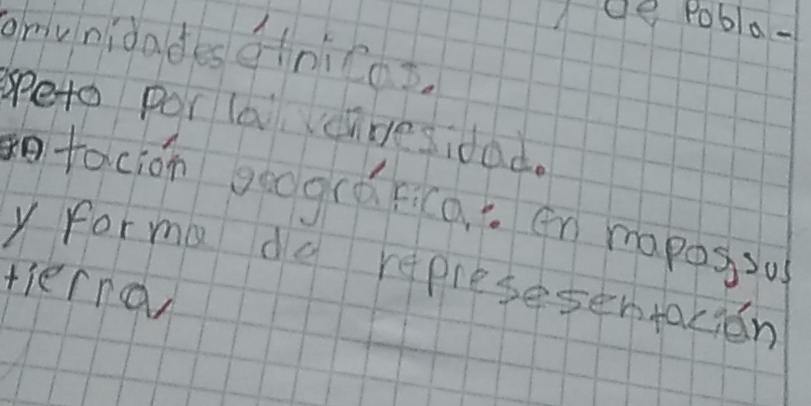 de Pobla-
omunidades étnicas.
speto por la diversidad.
tación geográfica: en mapas, sus
y forma de represesentación
tierra